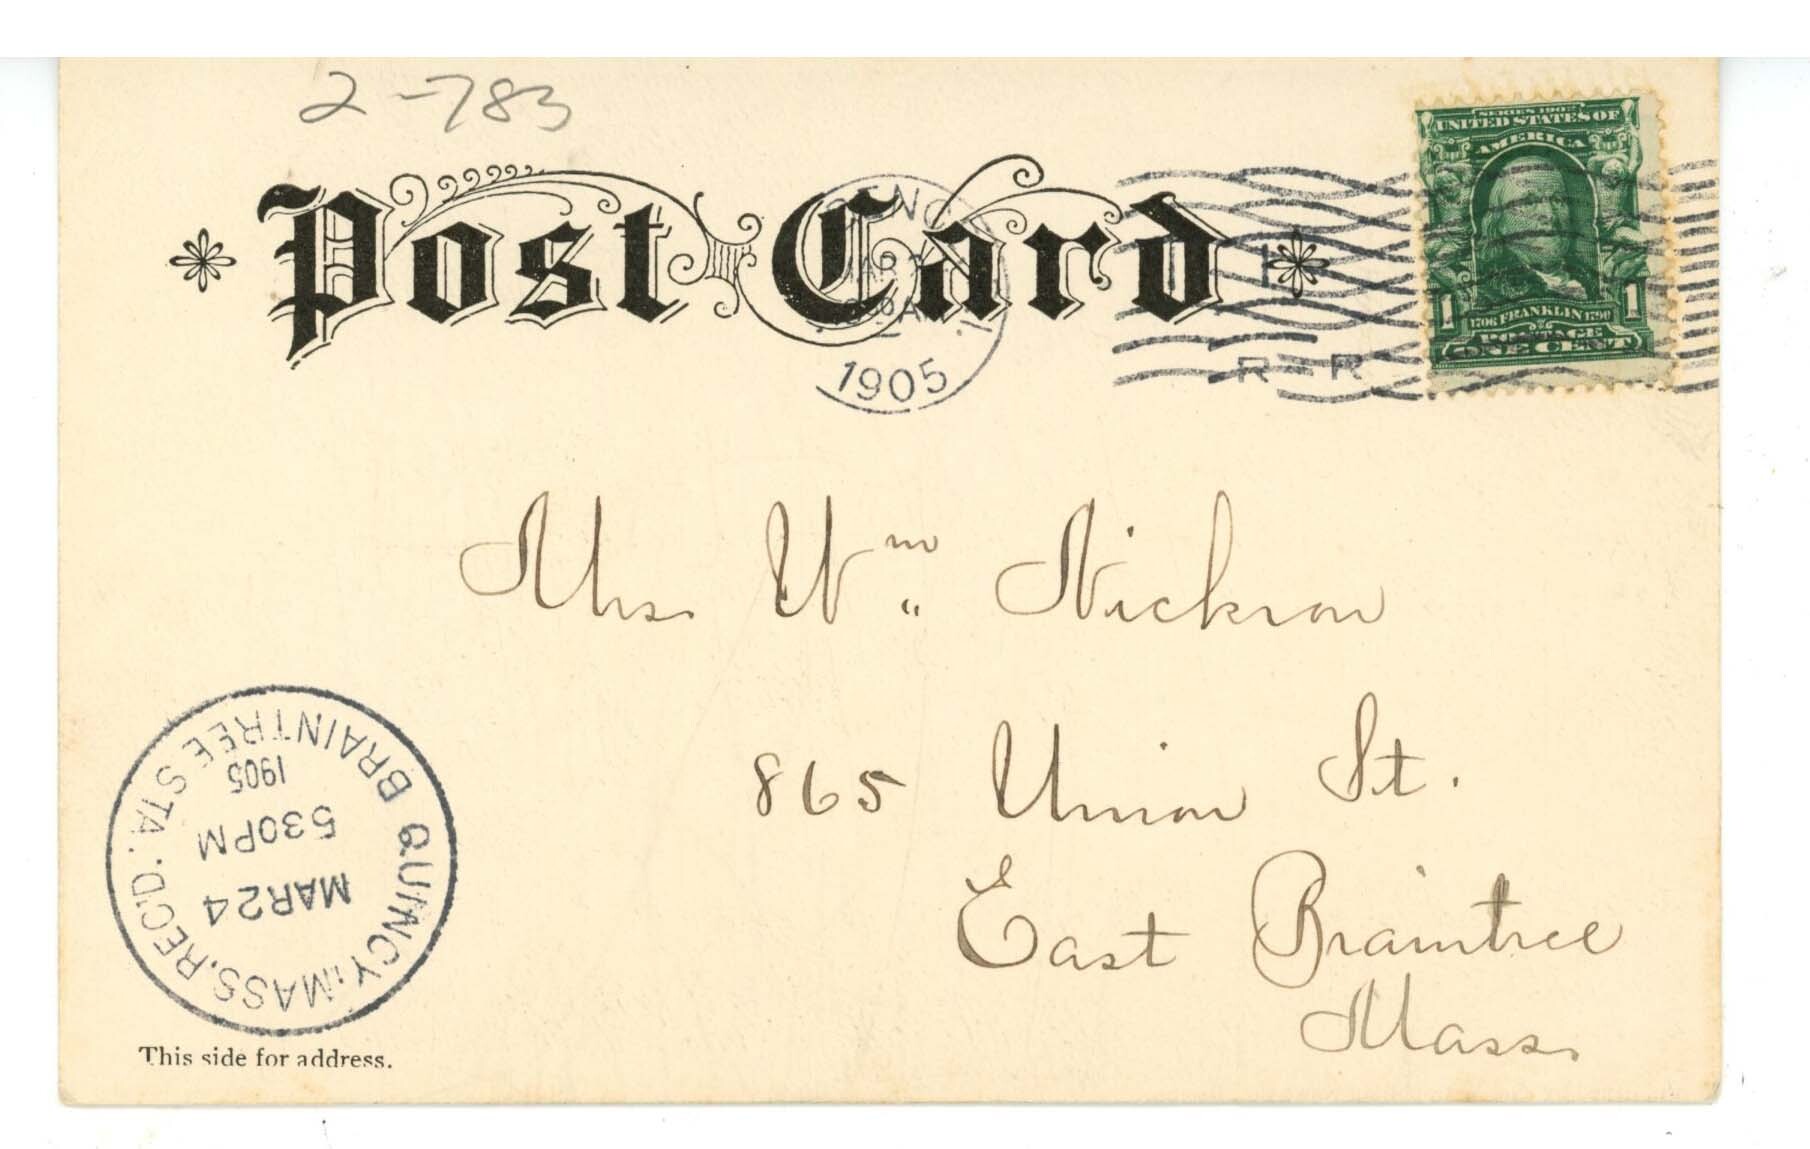 2-783
Post Card
1905
R R
SERIES 1902
UNITED STATES OF
AMERICA
1 1
1706 FRANKLIN 1790
POSTAGE
ONE CENT
Mrs. Wm Nickson
865 Union St.
East Braintree
Mass.
QUINCY, MASS. REC'D.
BRAINTREE STA.
MAR 24
5 30 PM
1905
This side for address.